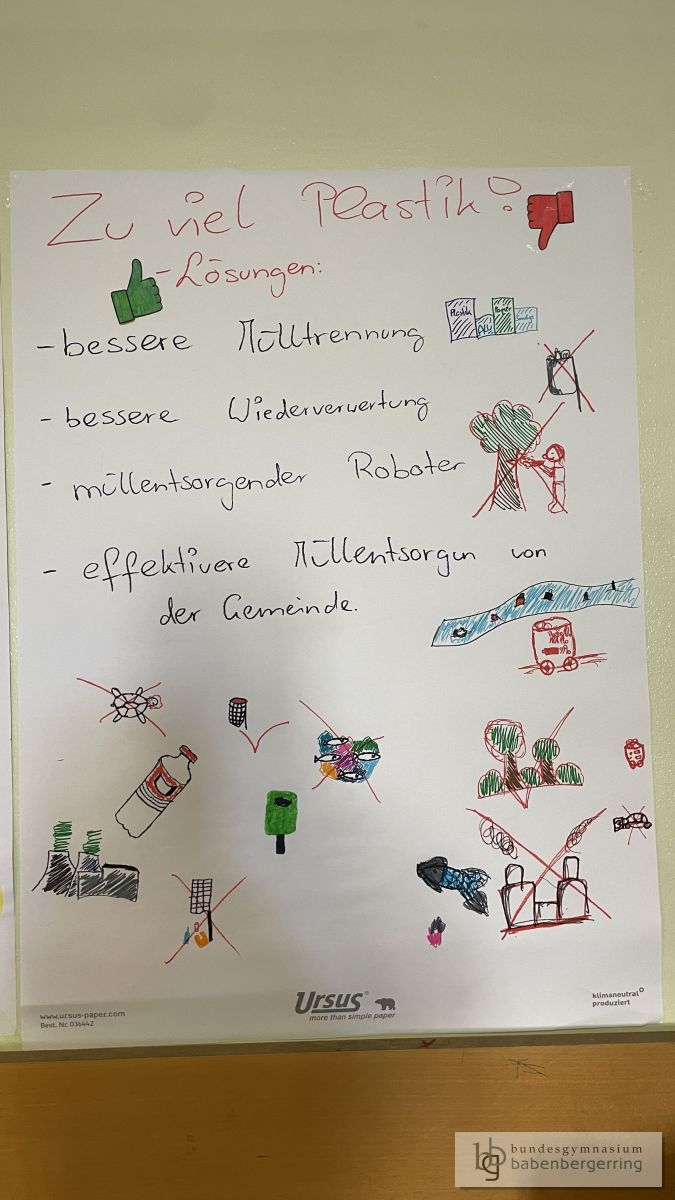 Zu viel Plastik?
-Lösungen:
- bessere Mülltrennung
Plastik
- bessere Wiederverwertung
- müllentsorgender Roboter
- effektivere Müllentsorgun von
der Gemeinde.
www.ursus-paper.com
Best. Nr. 036442
URSUS®
more than simple paper
klimaneutral
produziert
bg bundesgymnasium
babenbergerring